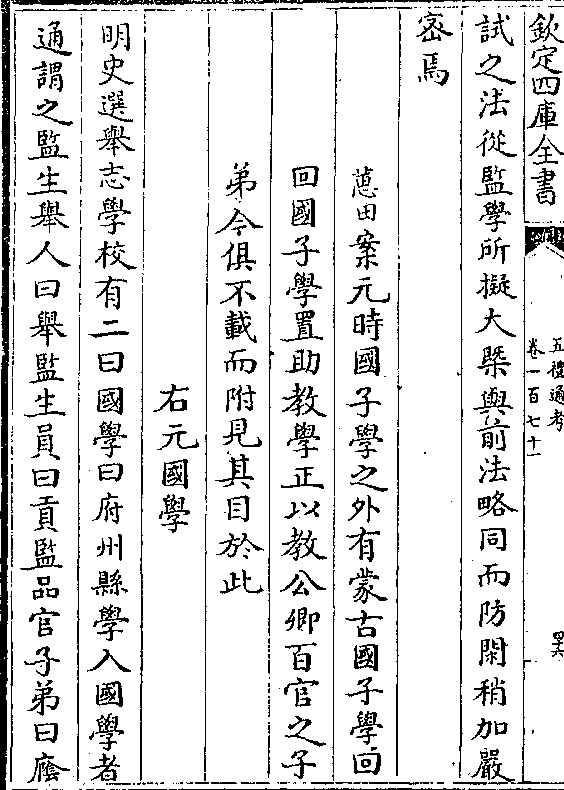 欽定四庫全書
五禮通考
卷一百七十一
四六
試之法從監學所擬大槩與前法略同而防閑稍加嚴
宻焉
蕙田案元時國子學之外有蒙古國子學回
回國子學置助教學正以教公卿百官之子
弟今俱不載而附見其目於此
右元國學
明史選舉志學校有二曰國學曰府州縣學入國學者
通謂之監生舉人曰舉監生員曰貢監品官子弟曰廕